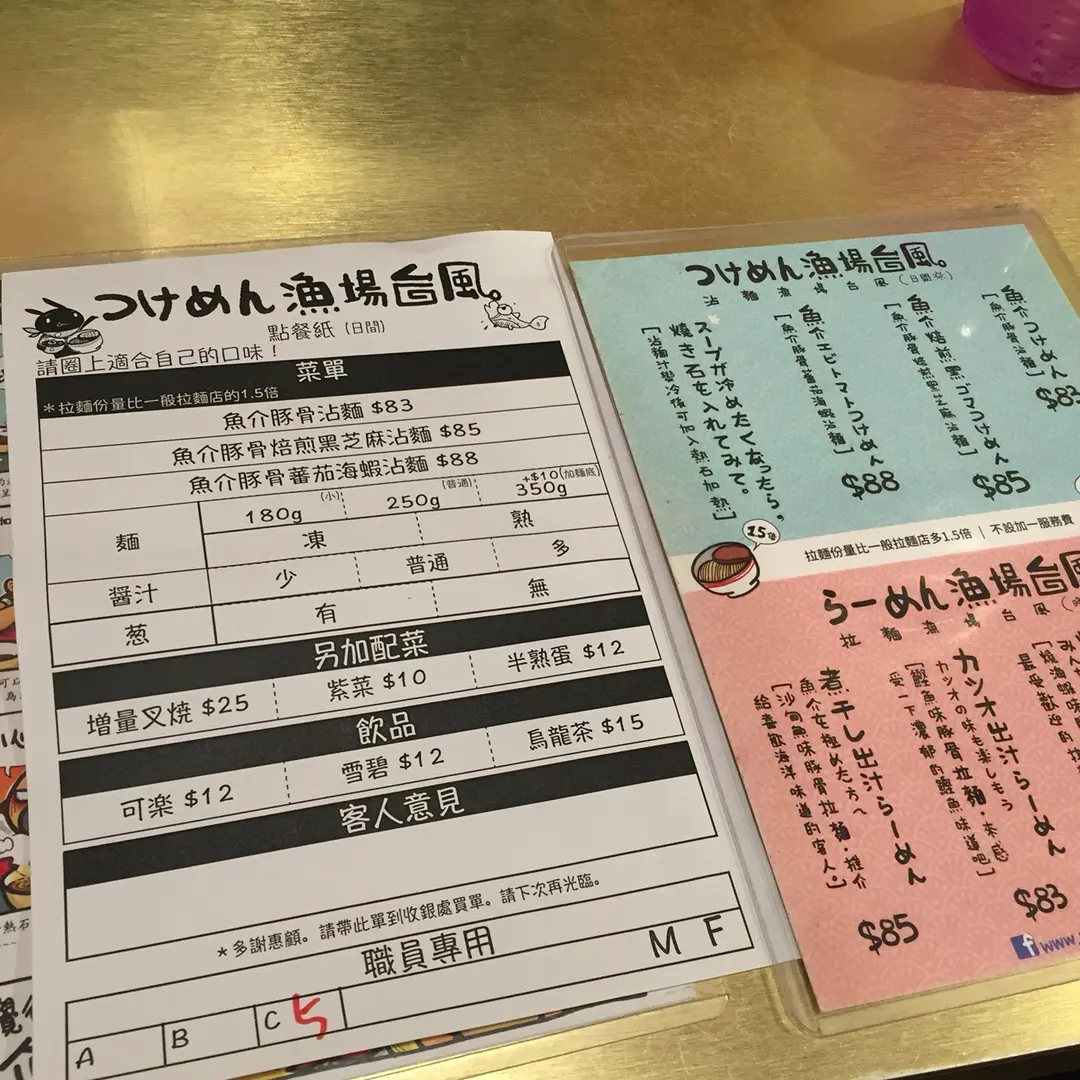 つけめん漁場台風。
點餐紙（日間）
請圈上適合自己的口味！
菜單
＊拉麵份量比一般拉麵店的1.5倍
魚介豚骨沾麵 $83
魚介豚骨焙煎黑芝麻沾麵 $85
魚介豚骨蕃茄海蝦沾麵 $88
麵
180g (小) 250g (普通) 350g +$10(加麵底)
凍 熟
醬汁 少 普通 多
葱 有 無
另加配菜
增量叉燒 $25 紫菜 $10 半熟蛋 $12
飲品
可楽 $12 雪碧 $12 烏龍茶 $15
客人意見
＊多謝惠顧。請帶此單到收銀處買單。請下次再光臨。
職員專用 M F
A B C 5
つけめん漁場台風。
沾麵漁場台風（日間）
魚介つけめん
［魚介豚骨沾麵］
$83
魚介焙煎黒ゴマつけめん
［魚介豚骨焙煎黑芝麻沾麵］
$85
魚介エビトマトつけめん
［魚介豚骨蕃茄海蝦沾麵］
$88
スープが冷めたくなったら，
焼き石を入れてみて。
［沾麵汁變冷後可加入熱石加熱］
1.5倍
拉麵份量比一般拉麵店多1.5倍｜不設加一服務費
らーめん漁場台風
拉麵漁場台風
最受歡迎的
カツオ出汁らーめん
カツオの味も楽しもう
［鰹魚味豚骨拉麵，來感
受一下濃郁的鰹魚味道吧］
$83
煮干し出汁らーめん
魚介を極めた方へ
［沙甸魚味豚骨拉麵，推介
給喜歡海洋味道的客人］
$85
www.